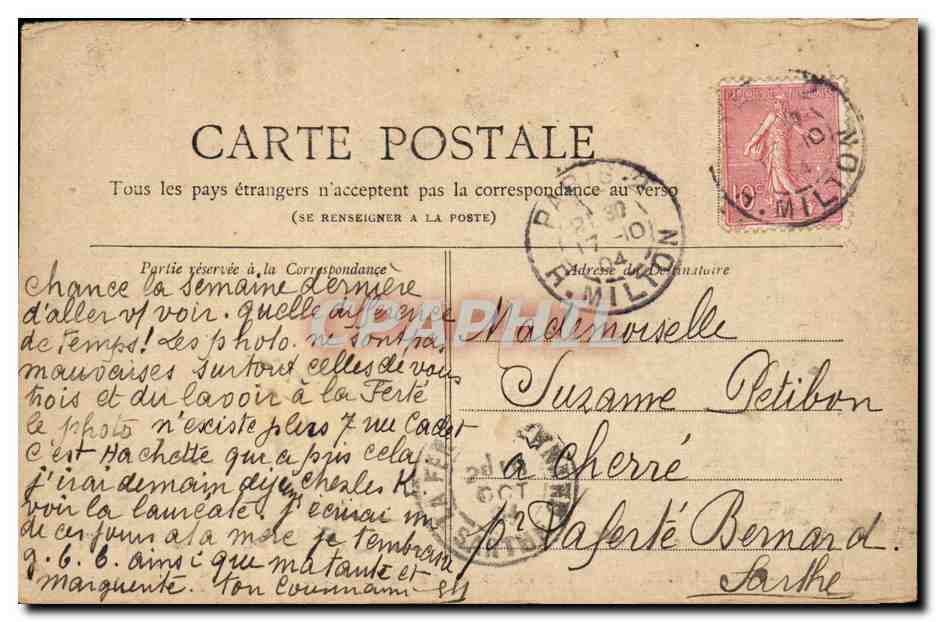 CARTE POSTALE
Tous les pays étrangers n'acceptent pas la correspondance au verso
(SE RENSEIGNER A LA POSTE)
10c
PARIS
30
17 -10
04
R. MILTON
10
R. MILTON
Partie réservée à la Correspondance
Adresse du Destinataire
CPAPHIL
chance la semaine dernière
d'aller v/ voir. quelle différence
de temps! Les photo. ne sont pas
mauvaises surtout celles de vous
trois et du lavoir à la Ferté
le photo n'existe plus 7 rue Cadet
c'est Hachette qui a pris cela
j'irai demain chez les K
voir la lauréate. J'écrirai un
de ces jours a ta mère je t'embrasse
g. b. b. ainsi que ma tante et
marguerite. ton
Mademoiselle
Suzanne Petibon
à Cherré
pr Laferté Bernard
Sarthe
LA FERTE
OCT
SARTHE